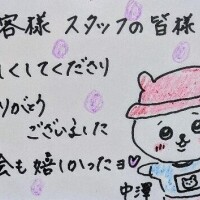 客様 スタッフの皆様
しくしてくださり
りがとう
ございました
会も嬉しかったヨ
中澤